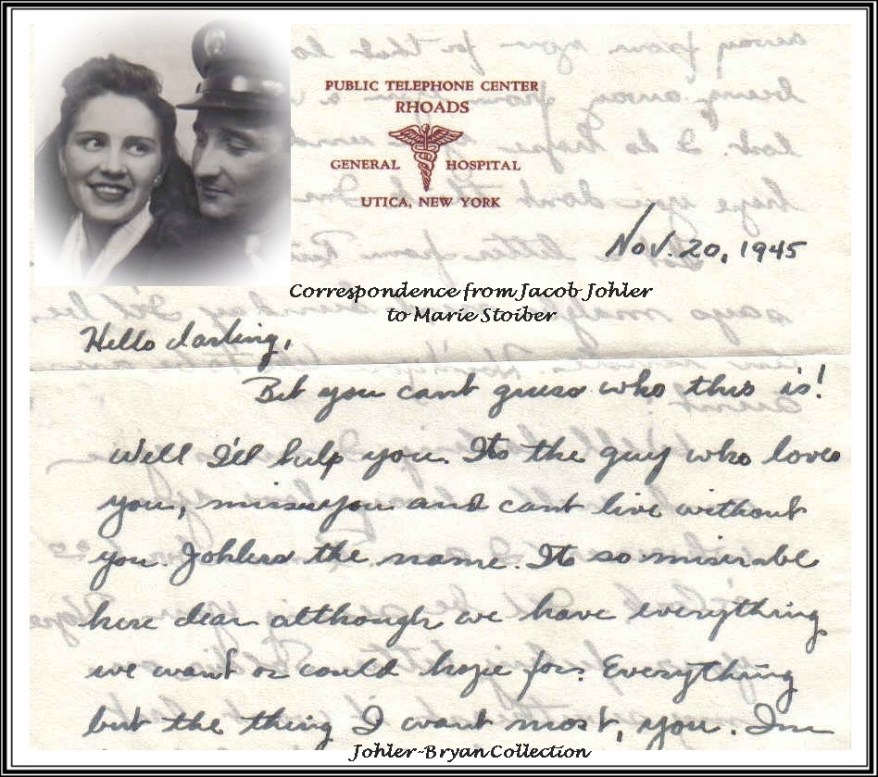 PUBLIC TELEPHONE CENTER
RHOADS
GENERAL HOSPITAL
UTICA, NEW YORK
Nov. 20, 1945
Correspondence from Jacob Johler
to Marie Stoiber
Hello darling,
Bet you cant guess who this is!
Well I'll help you. Its the guy who loves
you, miss you and cant live without
you. Johlers the name. Its so miserable
here dear although we have everything
we want or could hope for. Everything
but the thing I want most, you. Im
Johler-Bryan Collection